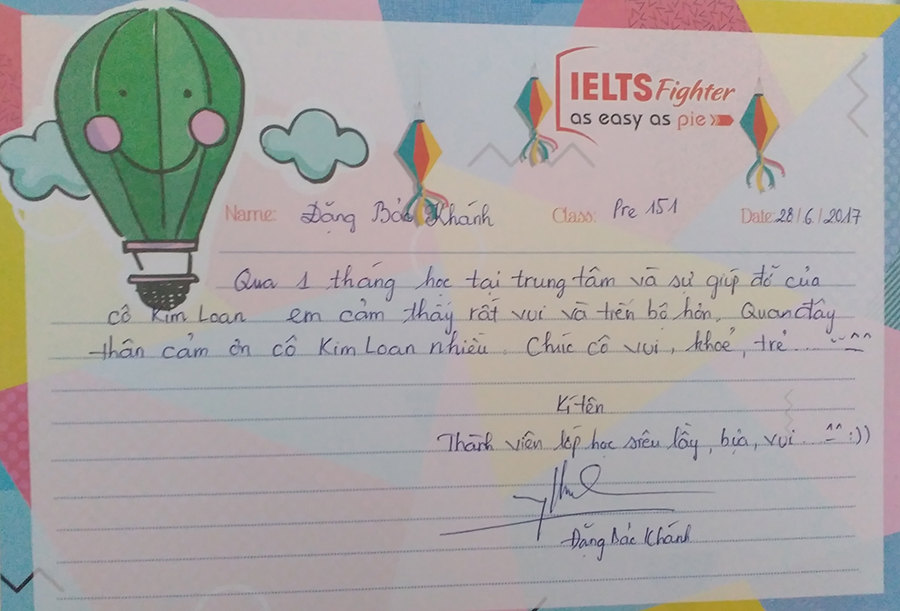 IELTS Fighter
as easy as pie
Name: Đặng Bác Khánh Class: Pre 151 Date: 28/6/2017
Qua 1 tháng học tại trung tâm và sự giúp đỡ của
cô Kim Loan em cảm thấy rất vui và tiến bộ hơn. Qua đây
thân cảm ơn cô Kim Loan nhiều. Chúc cô vui, khoẻ, trẻ... ^^
Kí tên
Thành viên lớp học siêu lầy, bựa, vui... ^^ :))
Đặng Bác Khánh